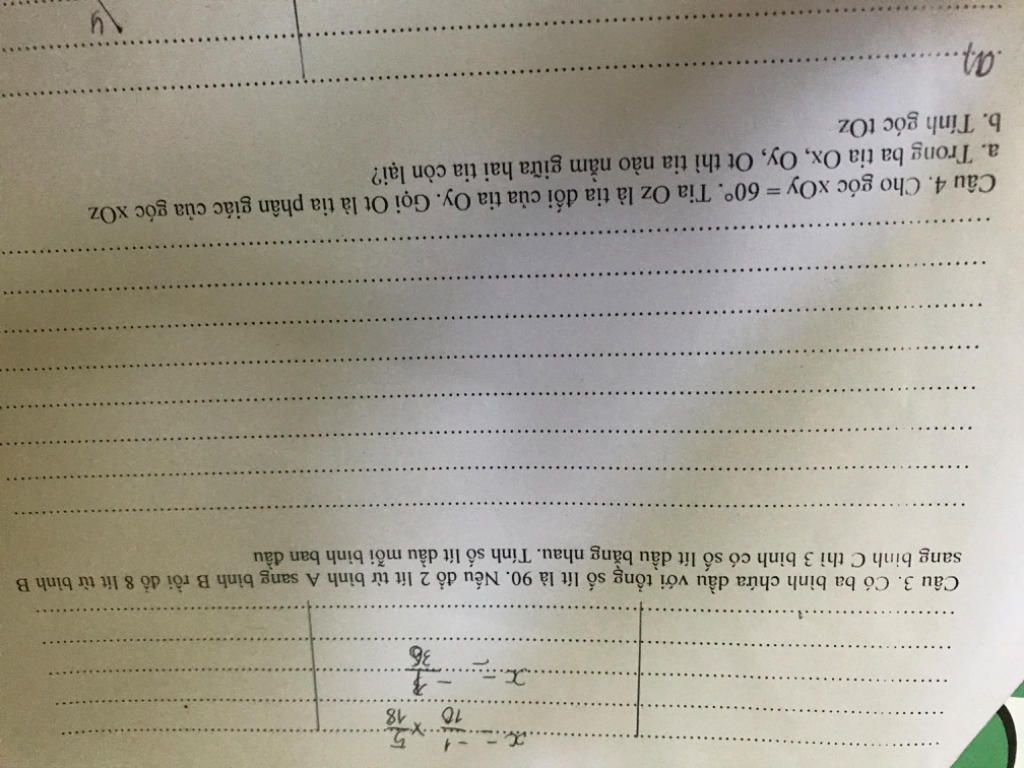 x = -1/10 × 5/18
x = -1/36
Câu 3. Có ba bình chứa dầu với tổng số lít là 90. Nếu đổ 2 lít từ bình A sang bình B rồi đổ 8 lít từ bình B
sang bình C thì 3 bình có số lít dầu bằng nhau. Tính số lít dầu mỗi bình ban đầu
Câu 4. Cho góc xOy = 60°. Tia Oz là tia đối của tia Oy. Gọi Ot là tia phân giác của góc xOz
a. Trong ba tia Ox, Oy, Ot thì tia nào nằm giữa hai tia còn lại?
b. Tính góc tOz
a)
y